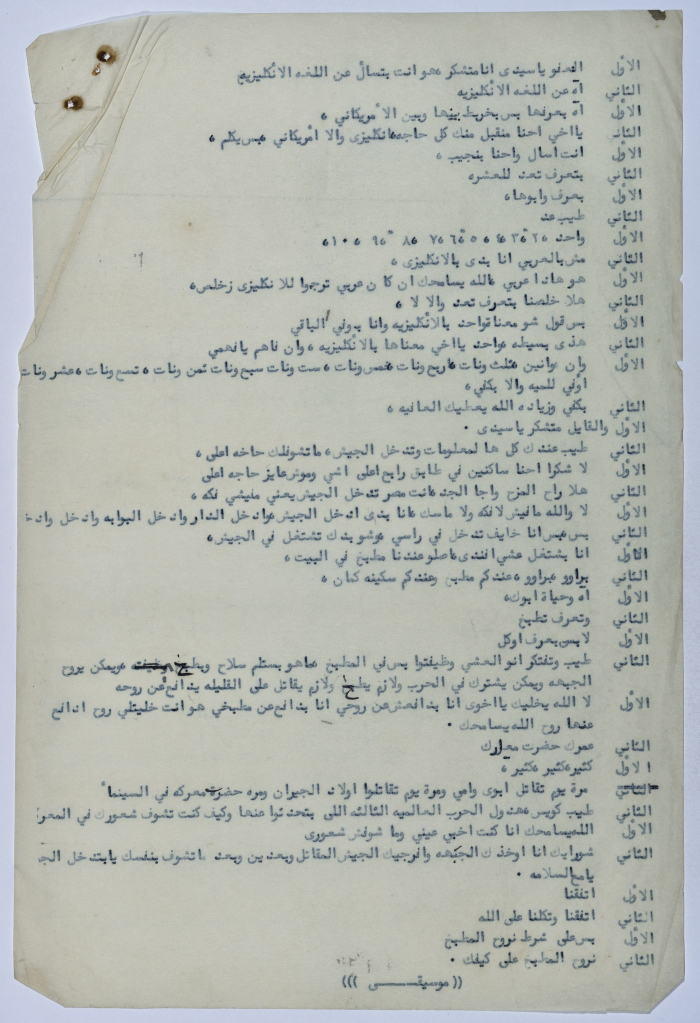 الأول العفو ياسيدى انا متشكر، هو انت بتسأل عن اللغه الانكليزيه
الثاني آه عن اللغه الانكليزيه
الأول آه بعرفها بس بخربط بينها وبين الأمريكاني ،
الثاني يااخي احنا منقبل منك كل حاجه، انكليزى والا امريكاني ، بس يكلم ،
الأول انت اسال واحنا بنجيب ،
الثاني بتعرف تعد للعشره
الأول بعرف وابوها،
الثاني طيب عد
الأول واحد ،٢ ،٣ ،٤ ،٥ ،٦ ،٧ ،٨ ،٩ ،١٠ ،
الثاني مش بالعربي انا بدى بالانكليزى ،
الأول هو هادا عربي ،الله يسامحك ان كان عربي ترجموا للانكليزى زخلص،
الثاني هلا خلصنا بتعرف تعد والا لا ،
الأول بس قول شو معناة واحد بالانكليزيه وانا بدوني الباقي
الثاني هذى بسيطه ،واحد يااخي معناها بالانكليزيه ، وان فاهم يافهمي
الأول وان ،واثنين ،ثلث ونات ،اربع ونات ،خمس ونات ، ست ونات سبع ونات ثمن ونات ، تسع ونات ،عشر ونات
اوفي للميه والا بكفي،
الثاني بكفي وزياده الله يعطيك العافيه ،
الأول والقايل متشكر ياسيدى .
الثاني طيب عندك كل ها لمعلومات وتدخل الجيش، ماتشوفلك حاجه اعلى ،
الأول لا شكرا احنا ساكنين في طابق رابع اعلى اشي وموش عايز حاجه اعلى
الثاني هلا راح المزح واجا الجد ،انت مصر تدخل الجيش يعني مفيشي فكه ،
الأول لا والله مافيش لافكه ولا ماسك ،انا بدى ادخل الجيش ،وادخل الدار وادخل البوابه وادخل وادخ
الثاني بس ،بس انا خايف تدخل في راسي ،وشو بدك تشتغل في الجيش،
الأول انا بشتغل عشي افندى ،اصلو عندنا مطبخ في البيت ،
الثاني براوو ،براوو ، عندكم مطبخ وعندكم سكينه كمان ،
الأول آه وحياة ابوك،
الثاني وتعرف تطبخ
الأول لا بس بعرف اوكل
الثاني طيب وتفتكر انو العشي وظيفتوا بس في المطبخ ،ماهو بستلم سلاح وبطبخ ،ويمكن يروح
الجبهه ويمكن يشترك في الحرب ولازم يطبخ ولازم يقاتل على القليله يدافع عن روحه
الأول لا الله يخليك يااخوى انا بدافعش عن روحي انا بدافع عن مطبخي هو انت خليتلي روح ادافع
عنها روح الله يسامحك .
الثاني عمرك حضرت معارك
الأول كثير ،كثير ، كثير ،
الثاني مرة يوم تقاتل ابوى وامي ومرة يوم تقاتلوا اولاد الجيران ومره حضرت معركه في السينما
الثاني طيب كويس ،هدول الحرب العالميه الثالثه اللى بتحدثوا عنها وكيف كنت تشوف شعورك في المعر
الأول الله يسامحك انا كنت اخبي عيني وما شوفش شعورى
الثاني شورايك انا اوخذك الجبهه وافرجيك الجيش المقاتل وبعدين وبعد ماتشوف بنفسك يابتدخل الج
يامع السلامه .
الأول اتفقنا
الثاني اتفقنا وتكلنا على الله
الأول بس على شرط نروح المطبخ
الثاني نروح المطبخ على كيفك .
(( موسيقـــــــى )))